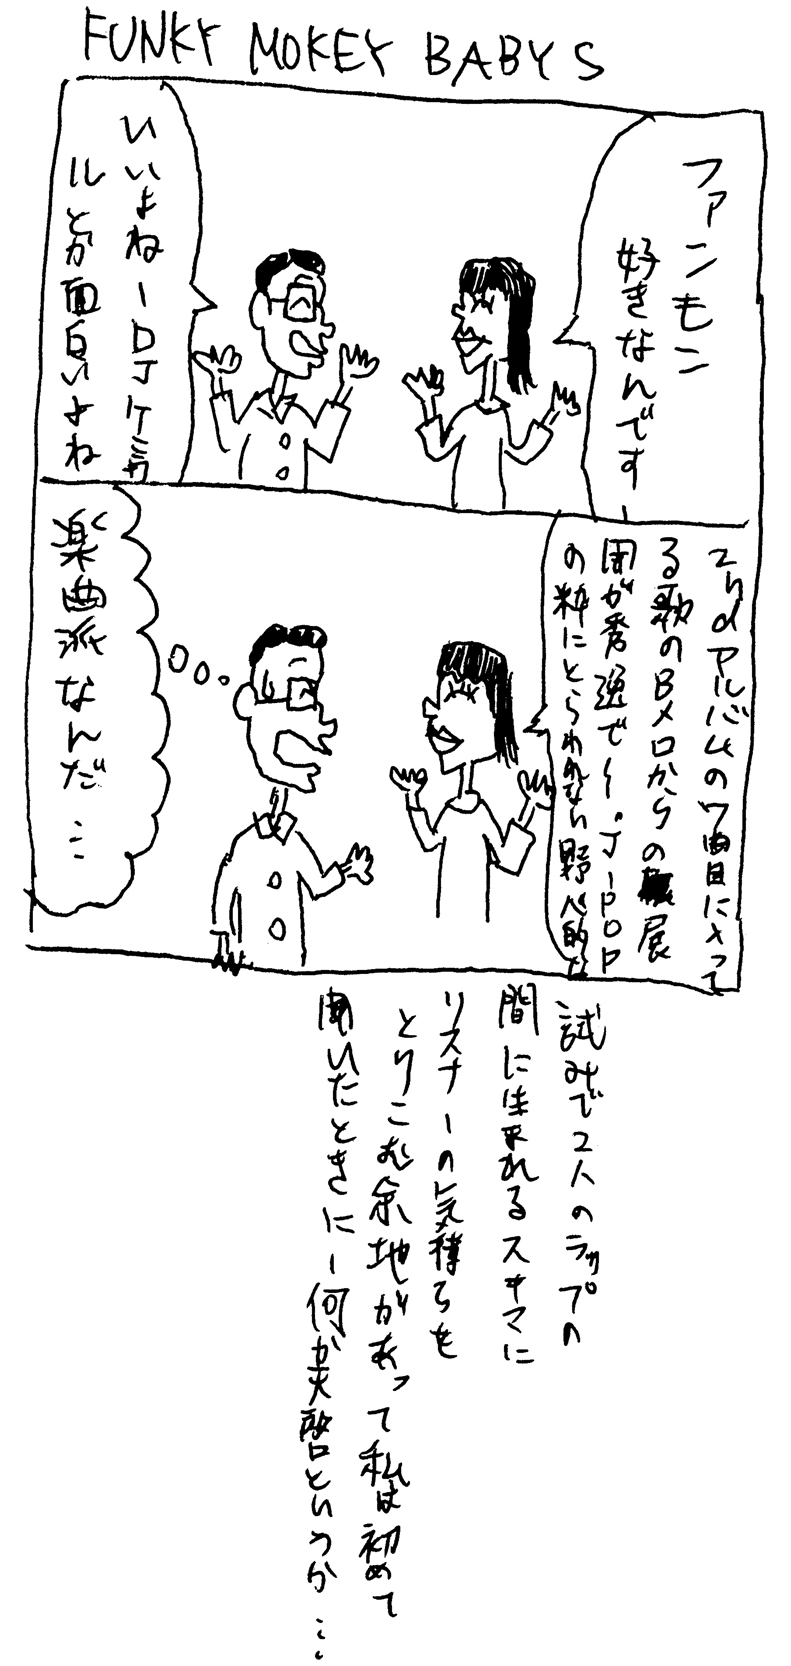 FUNKY MOKEY BABYS
ファンモン
好きなんですー
いいよねーDJケミカ
ルとか面白いよね
2ndアルバムの7曲目に入って
る歌のBメロからの展
開が秀逸でー。J-POP
の粋にとらわれない野心的な
試みで2人のラップの
間に生まれるスキマに
リスナーの気持ちを
とりこむ余地があって私は初めて
聞いたときにー何か実際というか…
楽曲派なんだ…